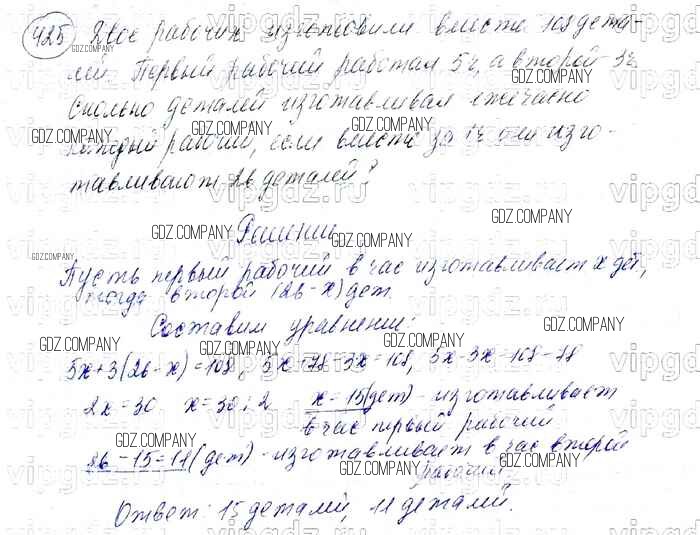 425 Двое рабочих изготовили вместе 108 дета-
лей. Первый рабочий работал 5ч, а второй 3ч.
Сколько деталей изготавливал ежечасно
каждый рабочий, если вместе за 1ч они изго-
тавливают 26 деталей?
Решение
Пусть первый рабочий в час изготавливает x дет,
тогда второй (26-x) дет.
Составим уравнение:
5x+3(26-x)=108, 5x+78-3x=108, 5x-3x=108-78
2x=30 x=30:2 x=15(дет) - изготавливает
в час первый рабочий
26-15=11(дет) - изготавливает в час второй
рабочий.
Ответ: 15 деталей, 11 деталей.